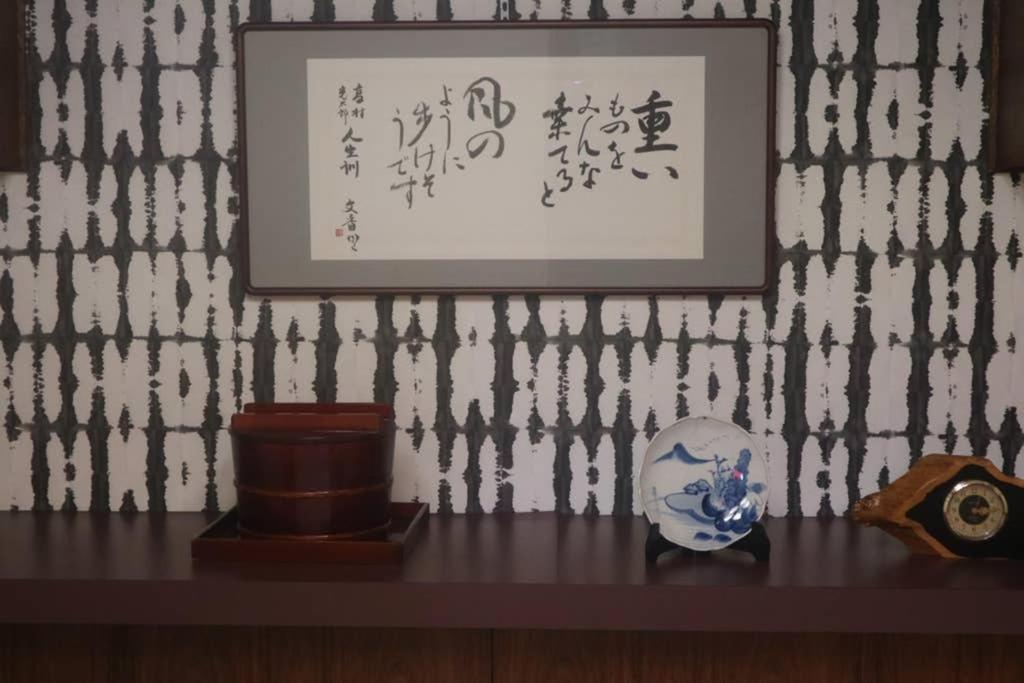 重い
ものを
みんな
棄てる
と
風の
ように
歩けそ
うです
高村
光太郎
人生訓